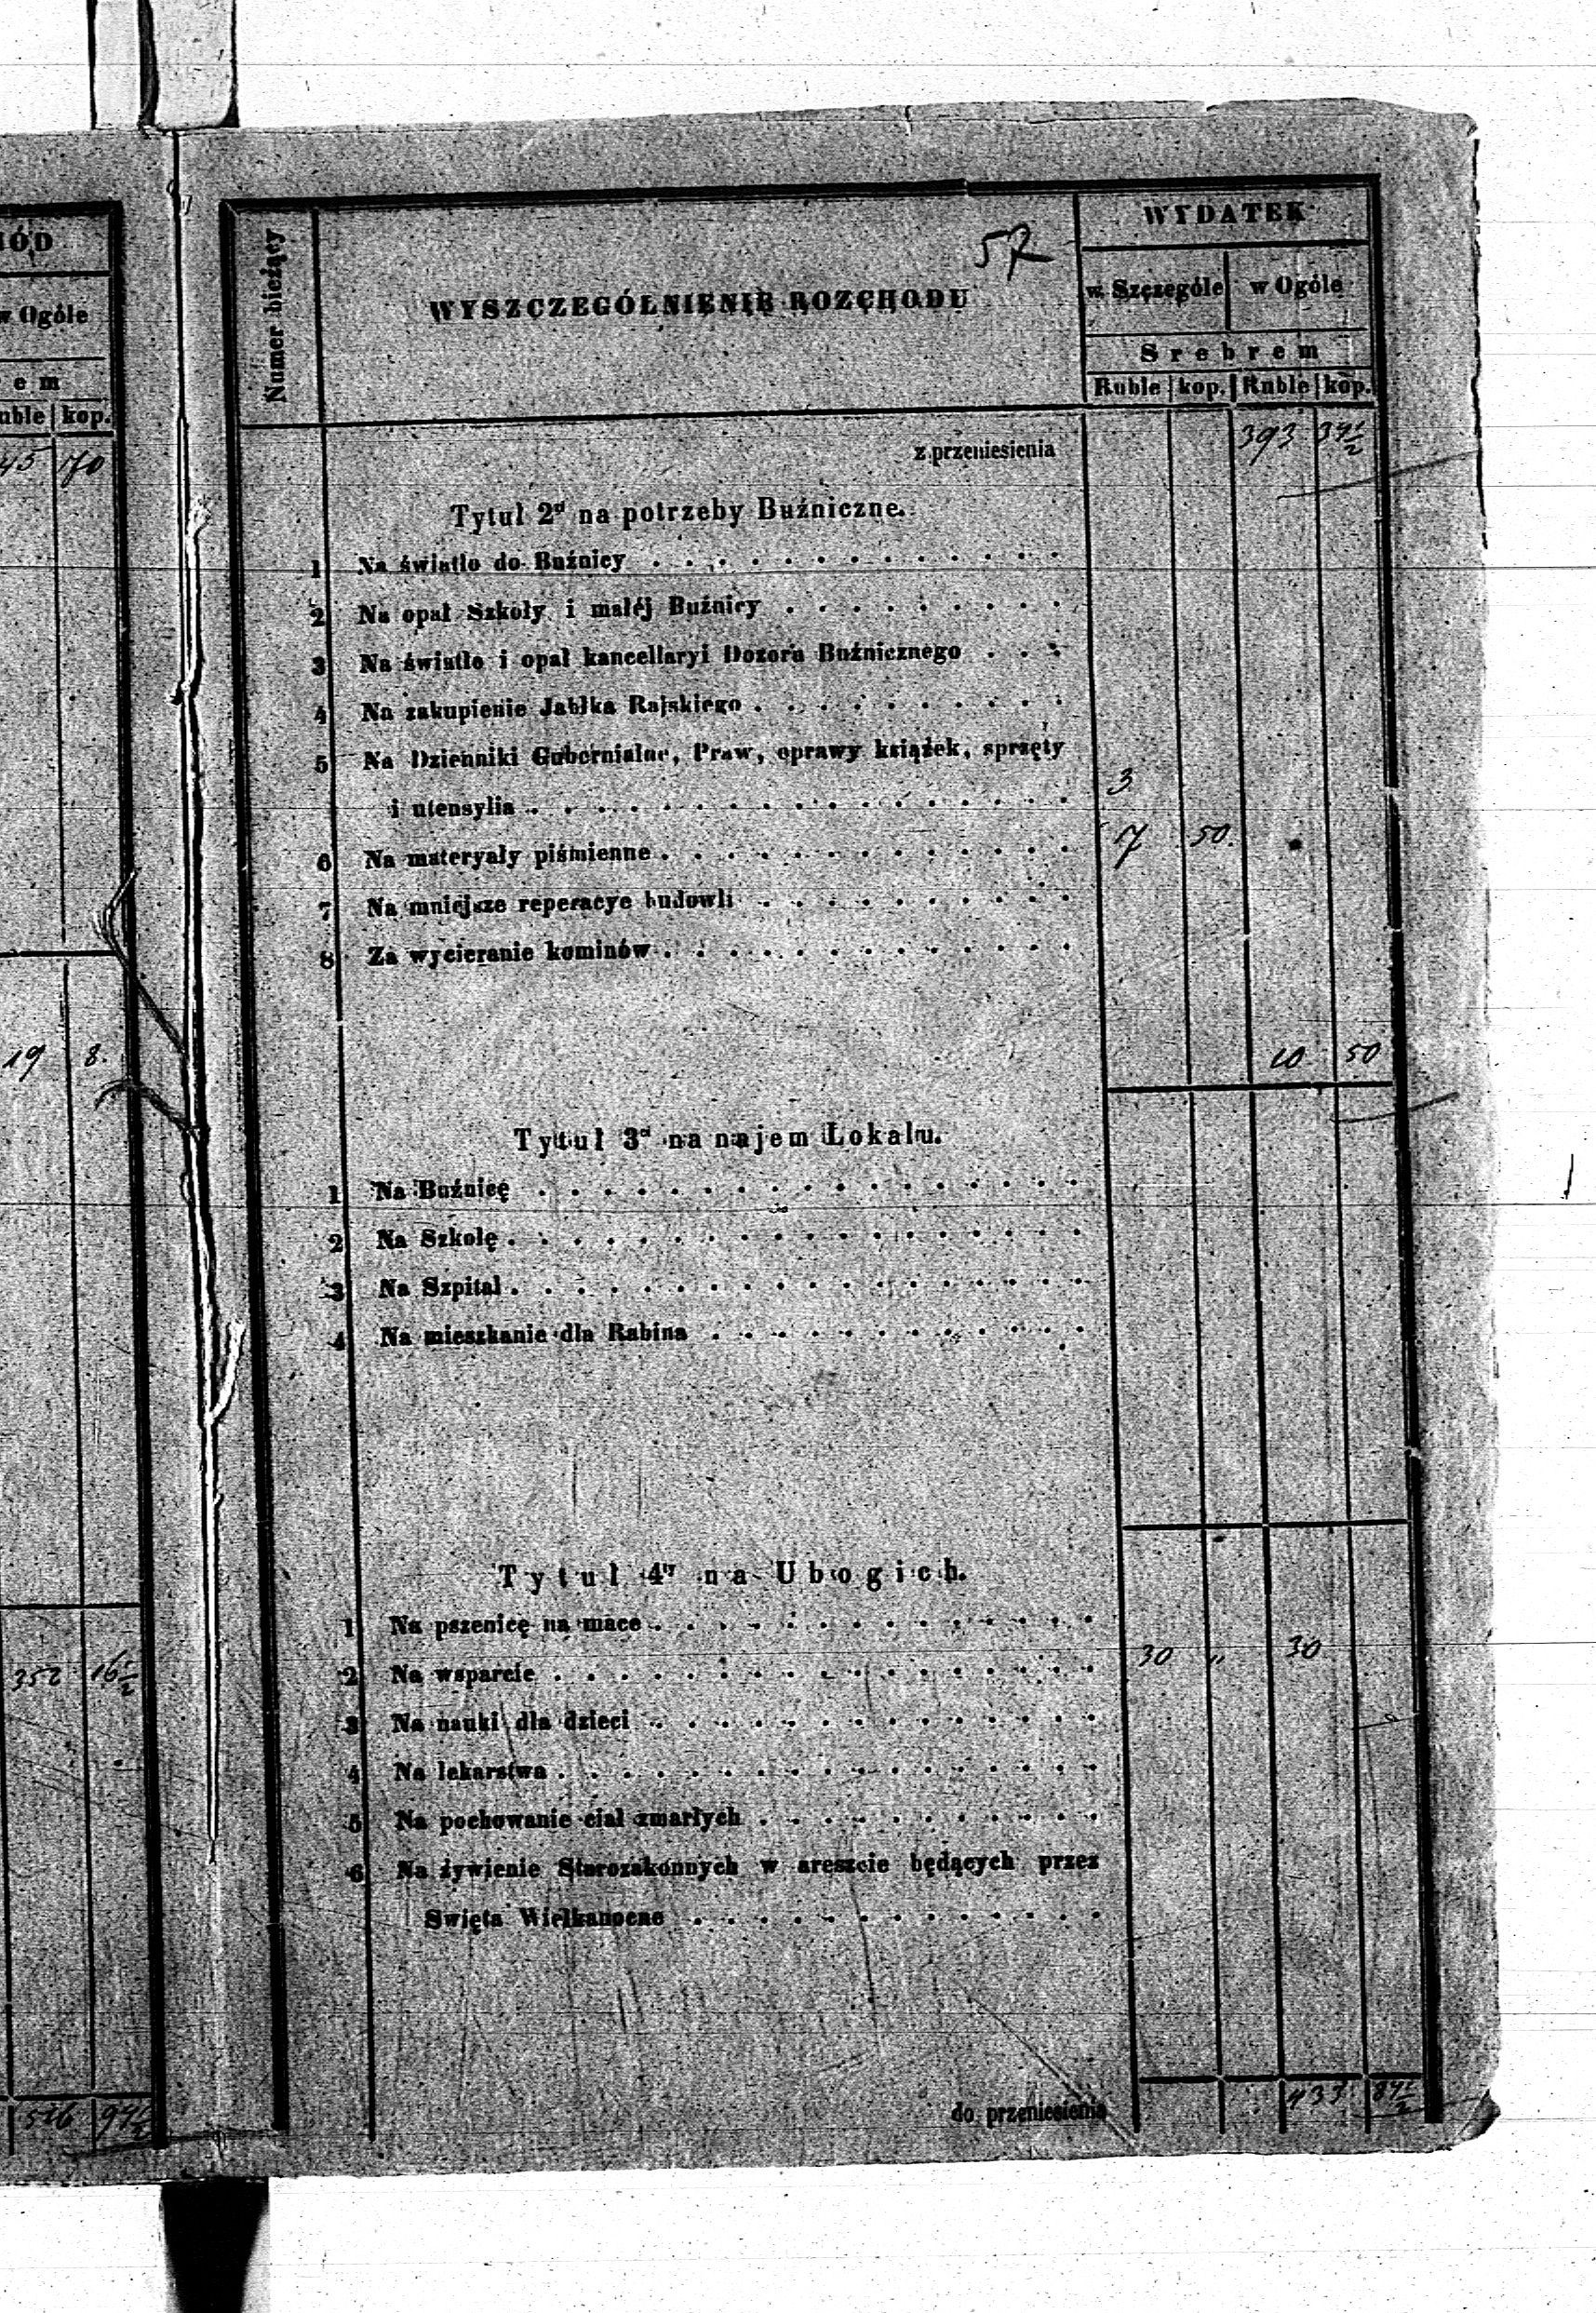 ÓD
w Ogóle
em
uble kop.
45 70
19 8.
352 16½
526 94½
57
Numer bieżący
WYSZCZEGÓLNIENIE ROZCHODU
WYDATEK
w Szczególe w Ogóle
Srebrem
Ruble kop. Ruble kop.
z przeniesienia 393 34½
Tytuł 2gi na potrzeby Buźniczne.
1 Na światło do Buźnicy
2 Na opał Szkoły i małéj Buźnicy
3 Na światło i opał kancellaryi Dozoru Buźnicznego
4 Na zakupienie Jabłka Rajskiego
5 Na Dzienniki Gubernialne, Praw, oprawy książek, sprzęty
i utensylia 3
6 Na materyały piśmienne 7 50.
7 Na mniejsze reperacye budowli
8 Za wycieranie kominów
10 50
Tytuł 3ci na najem Lokalu.
1 Na Buźnicę
2 Na Szkołę
3 Na Szpital
4 Na mieszkanie dla Rabina
Tytuł 4ty na Ubogich.
1 Na pszenicę na mace
2 Na wsparcie 30 „ 30
3 Na nauki dla dzieci
4 Na lekarstwa
5 Na pochowanie ciał zmarłych
6 Na żywienie Starozakonnych w areszcie będących przez
Swięta Wielkanocne
do przeniesienia 433 84½